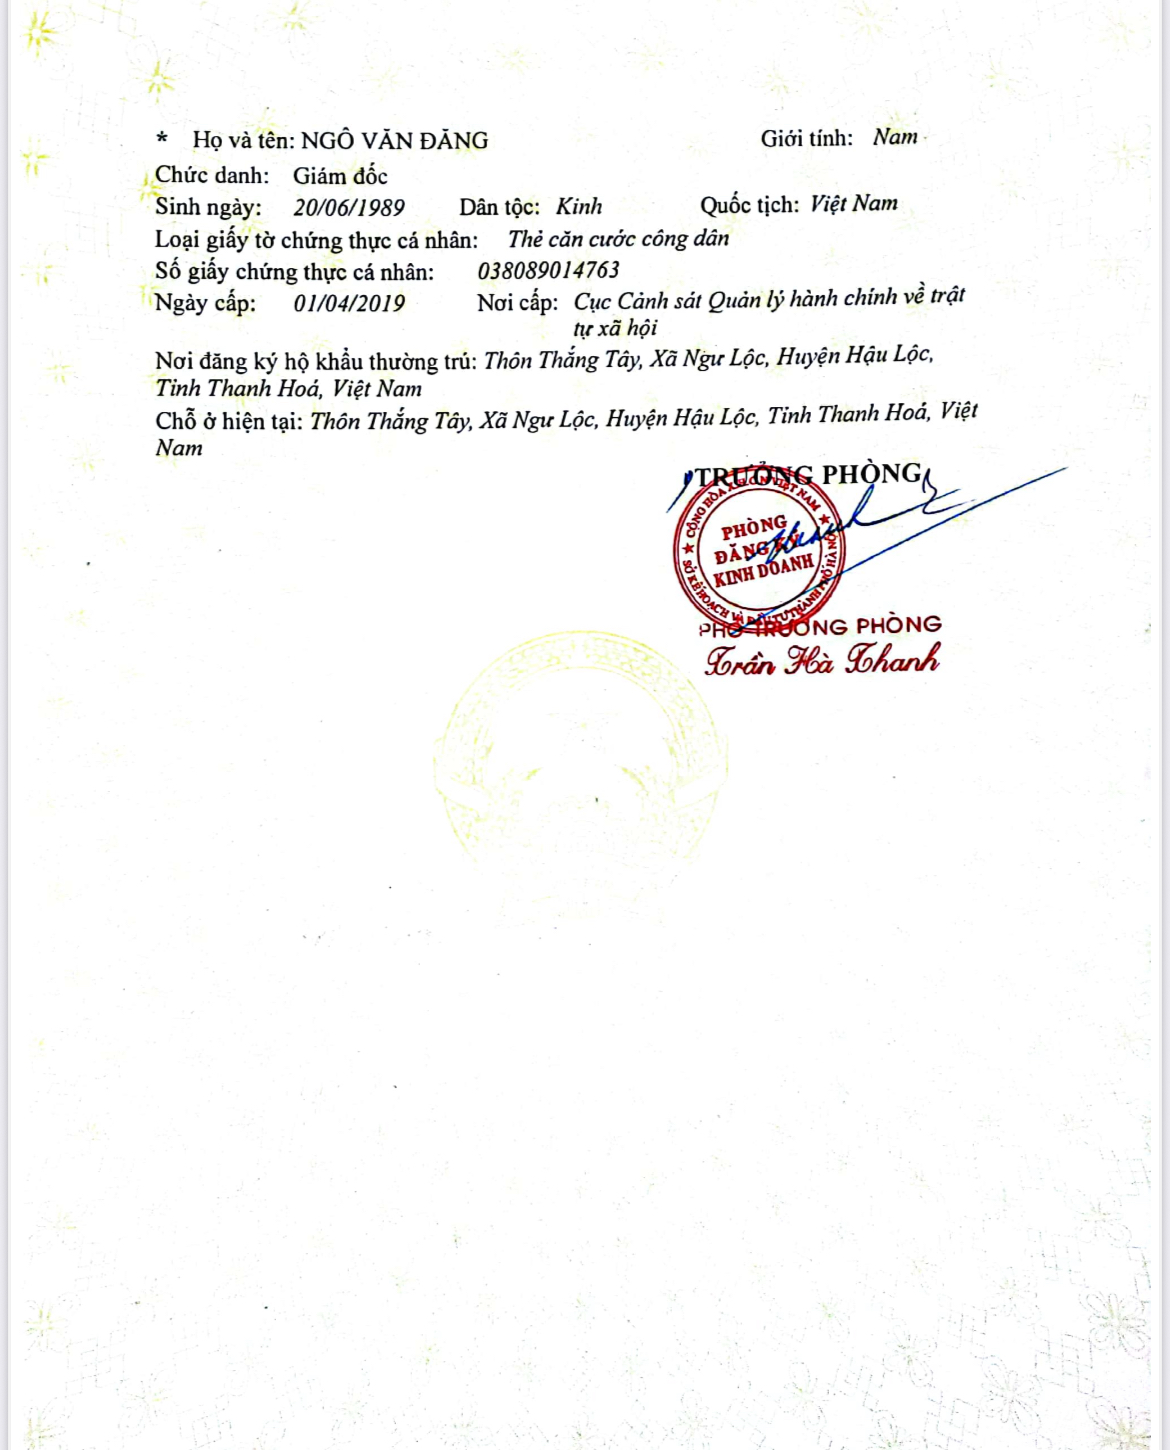 * Họ và tên: NGÔ VĂN ĐĂNG Giới tính: Nam
Chức danh: Giám đốc
Sinh ngày: 20/06/1989 Dân tộc: Kinh Quốc tịch: Việt Nam
Loại giấy tờ chứng thực cá nhân: Thẻ căn cước công dân
Số giấy chứng thực cá nhân: 038089014763
Ngày cấp: 01/04/2019 Nơi cấp: Cục Cảnh sát Quản lý hành chính về trật
tự xã hội
Nơi đăng ký hộ khẩu thường trú: Thôn Thắng Tây, Xã Ngư Lộc, Huyện Hậu Lộc,
Tỉnh Thanh Hoá, Việt Nam
Chỗ ở hiện tại: Thôn Thắng Tây, Xã Ngư Lộc, Huyện Hậu Lộc, Tỉnh Thanh Hoá, Việt
Nam
TRƯỞNG PHÒNG
CỘNG HÒA X.H.C.N VIỆT NAM
PHÒNG
ĐĂNG KÝ
KINH DOANH
SỞ KẾ HOẠCH VÀ ĐẦU TƯ THÀNH PHỐ HÀ NỘI
PHÓ TRƯỞNG PHÒNG
Trần Hà Thanh